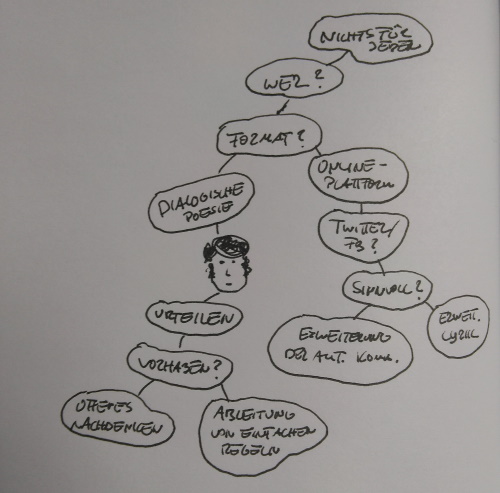 NICHTS FÜR
JEDEN
WER?
FORMAT?
ONLINE-
PLATTFORM
DIALOGISCHE
POESIE
TWITTER/
FB?
SINNVOLL?
URTEILEN
ERWEIT.
LYRIK
ERWEITERUNG
DER AUT. KOMM.
VORHABEN?
OFFENES
NACHDENKEN
ABLEITUNG
VON EINFACHEN
REGELN